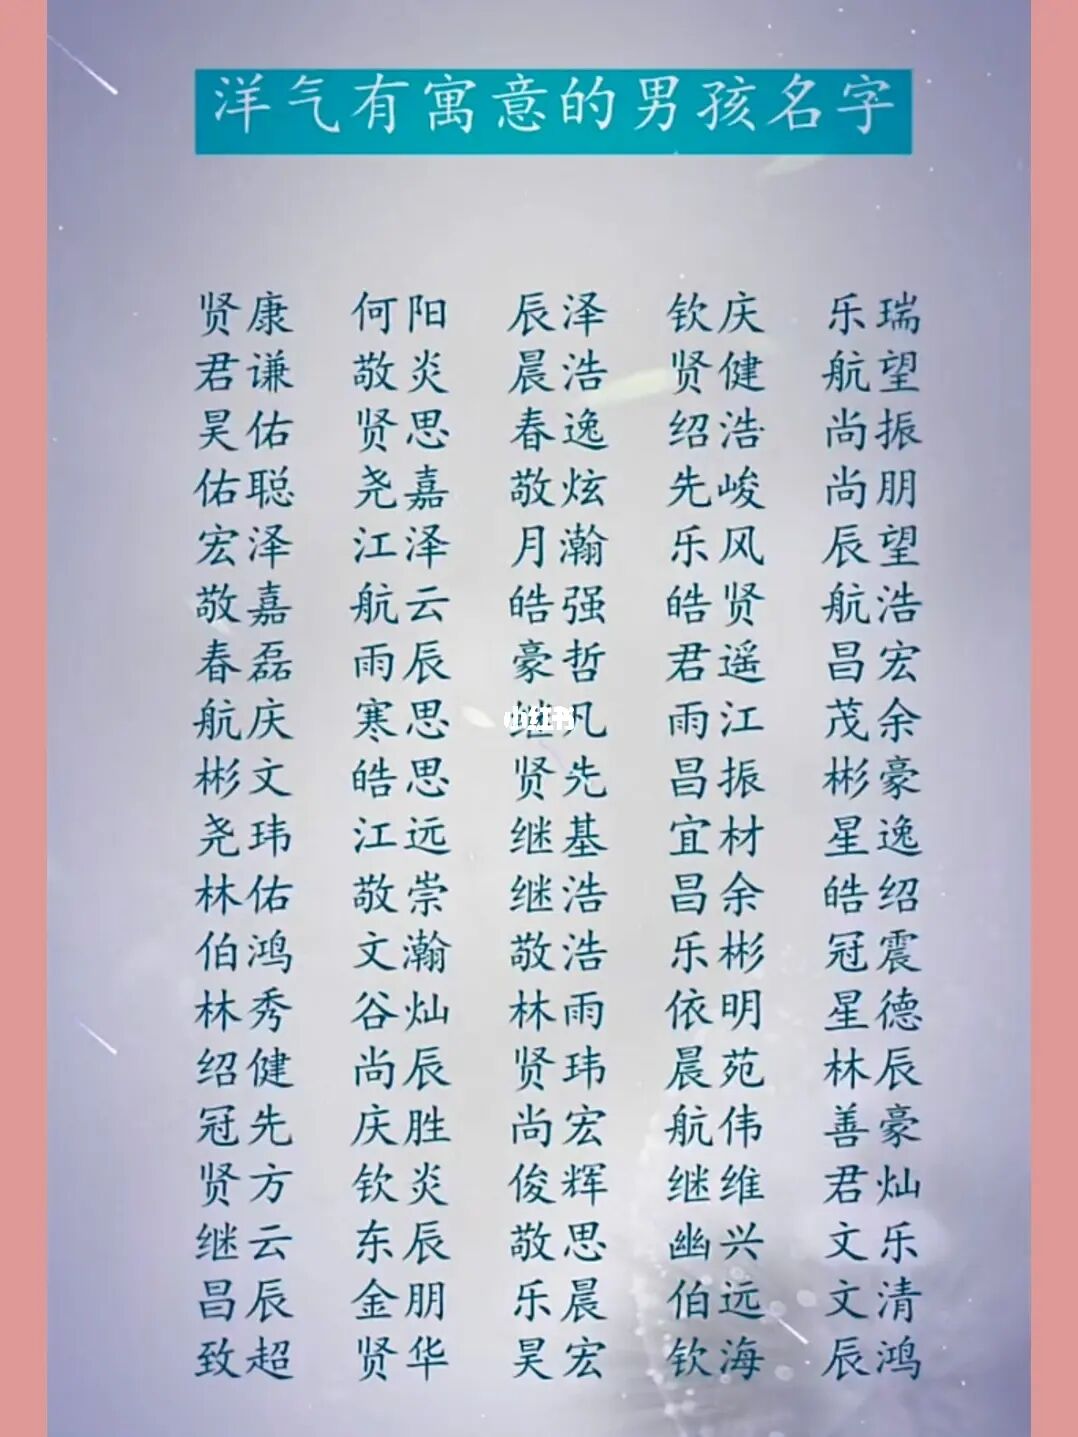 洋气有寓意的男孩名字
贤康 何阳 辰泽 钦庆 乐瑞
君谦 敬炎 晨浩 贤健 航望
昊佑 贤思 春逸 绍浩 尚振
佑聪 尧嘉 敬炫 先峻 尚朋
宏泽 江泽 月瀚 乐风 辰望
敬嘉 航云 皓强 皓贤 航浩
春磊 雨辰 豪哲 君遥 昌宏
航庆 寒思 继凡 雨江 茂余
小红书
彬文 皓思 贤先 昌振 彬豪
尧玮 江远 继基 宜材 星逸
林佑 敬崇 继浩 昌余 皓绍
伯鸿 文瀚 敬浩 乐彬 冠震
林秀 谷灿 林雨 依明 星德
绍健 尚辰 贤玮 晨苑 林辰
冠先 庆胜 尚宏 航伟 善豪
贤方 钦炎 俊辉 继维 君灿
继云 东辰 敬思 幽兴 文乐
昌辰 金朋 乐晨 伯远 文清
致超 贤华 昊宏 钦海 辰鸿